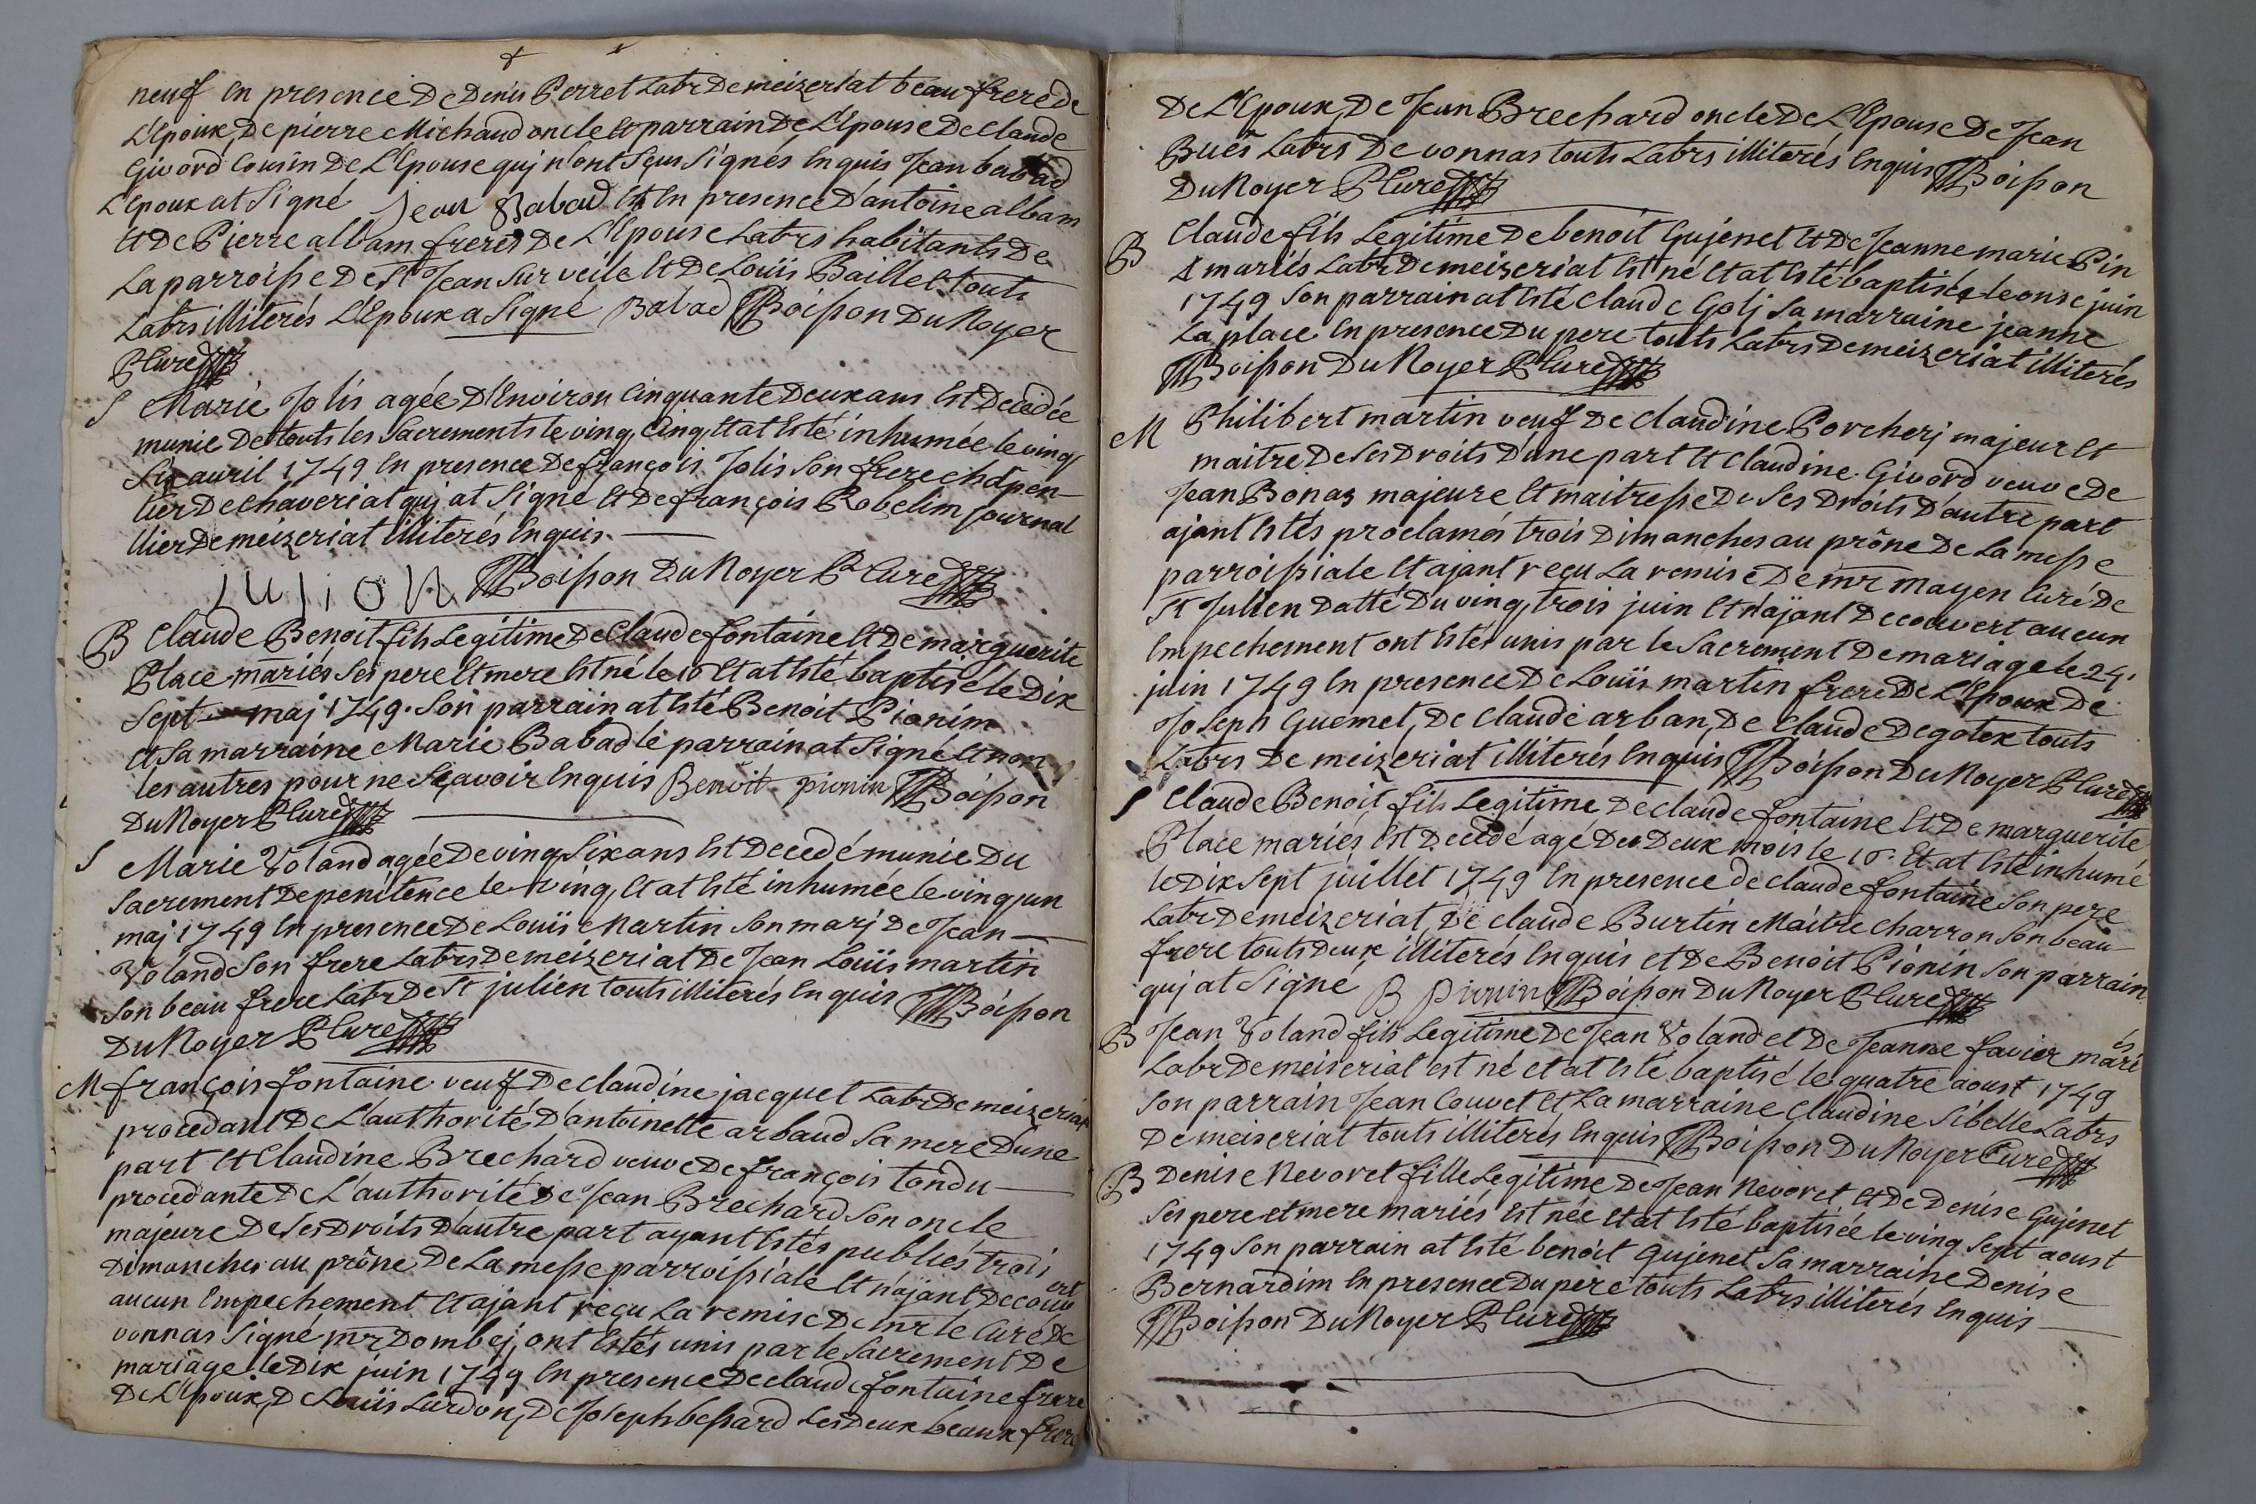 neuf En presence De Denis Perret Labr De meizeriat beau frere de
L'Epoux, De pierre Michaud oncle Et parrain De L'Epouse De claude
Givord Cousin De L'Epouse quj n'ont Sçus Signés Enquis Jean babad
L'Epoux at Signé Jean Babad Et En presence D'antoine albam
Et De Pierre albam freres De L'Epouse Labrs habitants De
La parroisse De St Jean sur veile Et De Louïs Baillet touts
Labrs illiterés L'Epoux a Signé Babad Boisson Du Noyer
P Curé
S Marie Jolis agée D'Environ Cinquante Deux ans Est Decedée
munie De touts les Sacrements le ving Cinq, Et at Esté inhumée le ving
Six avril 1749 En presence De françois Jolis Son frere charpen-
tier De chaveriat quj at Signé Et De françois Robelim Journal
llier De meizeriat illiterés Enquis
Boisson Du Noyer P Curé
B Claude Benoit fils Legitime De Claude fontaine Et De marguerite
Place mariés Ses pere Et mere Est né le 16 Et at Esté baptisé le Dix
Sept maj 1749. Son parrain at Esté Benoit Pionim
Et Sa marraine Marie Babad le parrain at Signé Et non
les autres pour ne Sçavoir Enquis Benoit pionin Boisson
Du Noyer P Curé
S Marie Voland agée De ving Six ans Est Decedé munie Du
Sacrement De penitence le ving, Et at Esté inhumée le ving un
maj 1749 En presence De Louïs Martin Son marj De Jean
Voland Son frere Labrs De meizeriat De Jean Louïs martin
Son beau frere Labr De St julien touts illiterés Enquis Boisson
Du Noyer P Curé
M françois fontaine veuf De claudine jacquet Labr De meizeriat
procedant De L'authorité D'antoinette arbaud Sa mere D'une
part Et Claudine Brechard veuve De françois tondu
procedante De L'authorité De Jean Brechard Son oncle
majeure De Ses Droits D'autre part ayant Estés publiés trois
Dimanches au prône De La messe parroissiale Et n'ajant Decouvert
aucun Empechement Et ajant reçu La remise De mr le Curé De
vonnas Signé mr Dombej, ont Estés unis par le Sacrement De
mariage le Dix juin 1749 En presence De claude fontaine frere
De L'Epoux, De Louïs Lurdon, De Joseph bessard Les Deux beaux frere
De L'Epoux, De Jean Brechard oncle De L'Epouse De Jean
Labrs De vonnas touts Labrs illiterés Enquis Boisson
Du Noyer P Curé
B Claude fils Legitime De benoit Gujenet Et De Jeanne marie Pin
mariés Labr De meizeriat Est né Et at Esté baptisé le onse juin
1749 Son parrain at Esté Claude Golj Sa marraine jeanne
La place En presence Du pere touts Labrs De meizeriat illiterés
Boisson Du Noyer P Curé
M Philibert martin veuf De claudine Porcherj majeur Et
maitre De Ses Droits D'une part Et Claudine Givord veuve De
Jean Bonaz majeure Et maitresse De Ses Droits D'autre part
ajant Estés proclamés trois Dimanches au prône De La messe
parroissiale Et ajant reçu La remise De mr mayen Curé De
St Julien Datté Du ving trois juin Et n'ajant Decouvert aucun
Empechement ont Estés unis par le Sacrement De mariage le 24.
juin 1749 En presence De Louïs martin frere De L'Epoux De
Joseph Guemet, De Claude arban, De Claude Degotex touts
Labrs De meizeriat illiterés Enquis Boisson Du Noyer P Curé
S Claude Benoit fils Legitime De claude fontaine Et De marguerite
Place mariés Est Decedé agé De Deux mois le 16. Et at Esté inhumé
le Dix Sept juillet 1749 En presence de claude fontaine Son pere
Labr De meizeriat, De claude Burtin Maitre Charron Son beau
frere touts Deux illiterés Enquis et De Benoit Pionin Son parrain
quj at Signé B Pionin Boisson Du Noyer P Curé
B Jean Voland fils Legitime De Jean Voland et De Jeanne favier mariés
Labr De meiseriat est né et at Esté baptisé le quatre aoust 1749
Son parrain Jean Couvet Et La marraine Claudine Sibelle Labrs
De meiseriat touts illiterés Enquis Boisson Du Noyer Curé
B Denise Nevoret fille Legitime De Jean Nevoret Et De Denise Gujenet
Ses pere et mere mariés Est née Et at Esté baptisée le ving Sept aoust
1749 Son parrain at Esté benoit Gujenet Sa marraine Denise
Bernardim En presence Du pere touts Labrs illiterés Enquis
Boisson Du Noyer P Curé